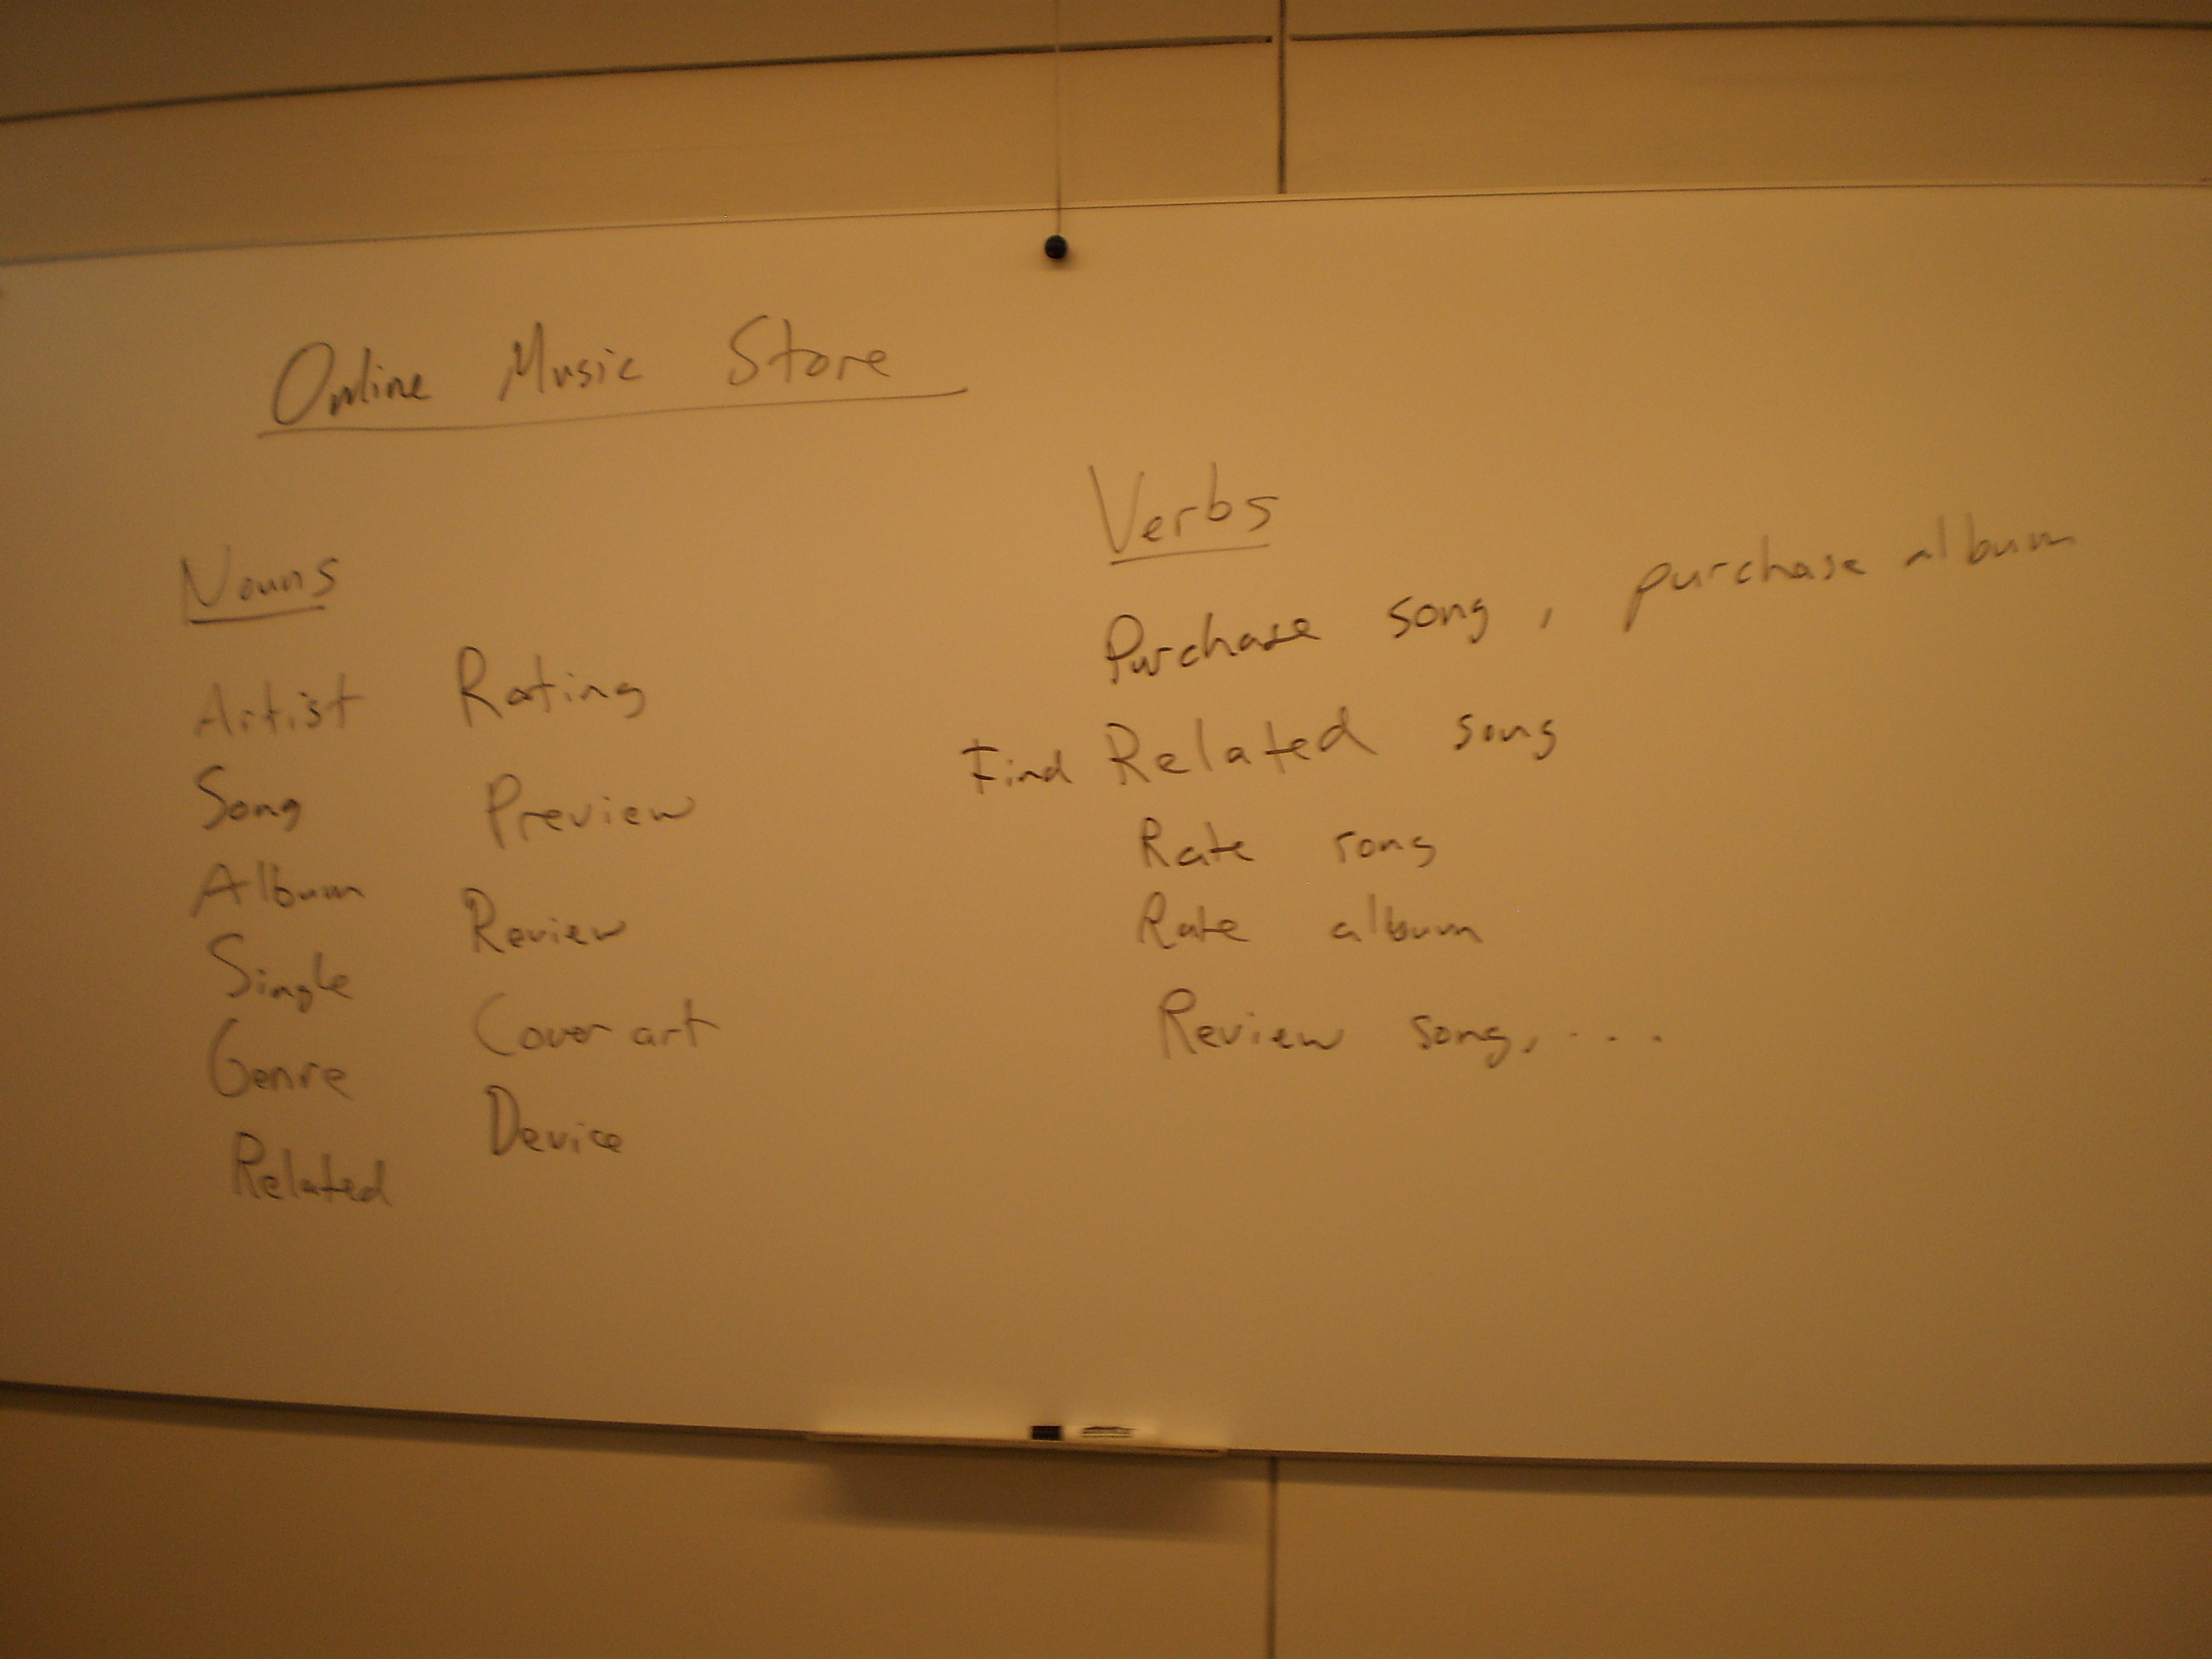 Online Music Store
Nouns
Artist
Song
Album
Single
Genre
Related
Rating
Preview
Review
Cover art
Device
Verbs
Purchase song, purchase album
Find Related song
Rate song
Rate album
Review song, ...